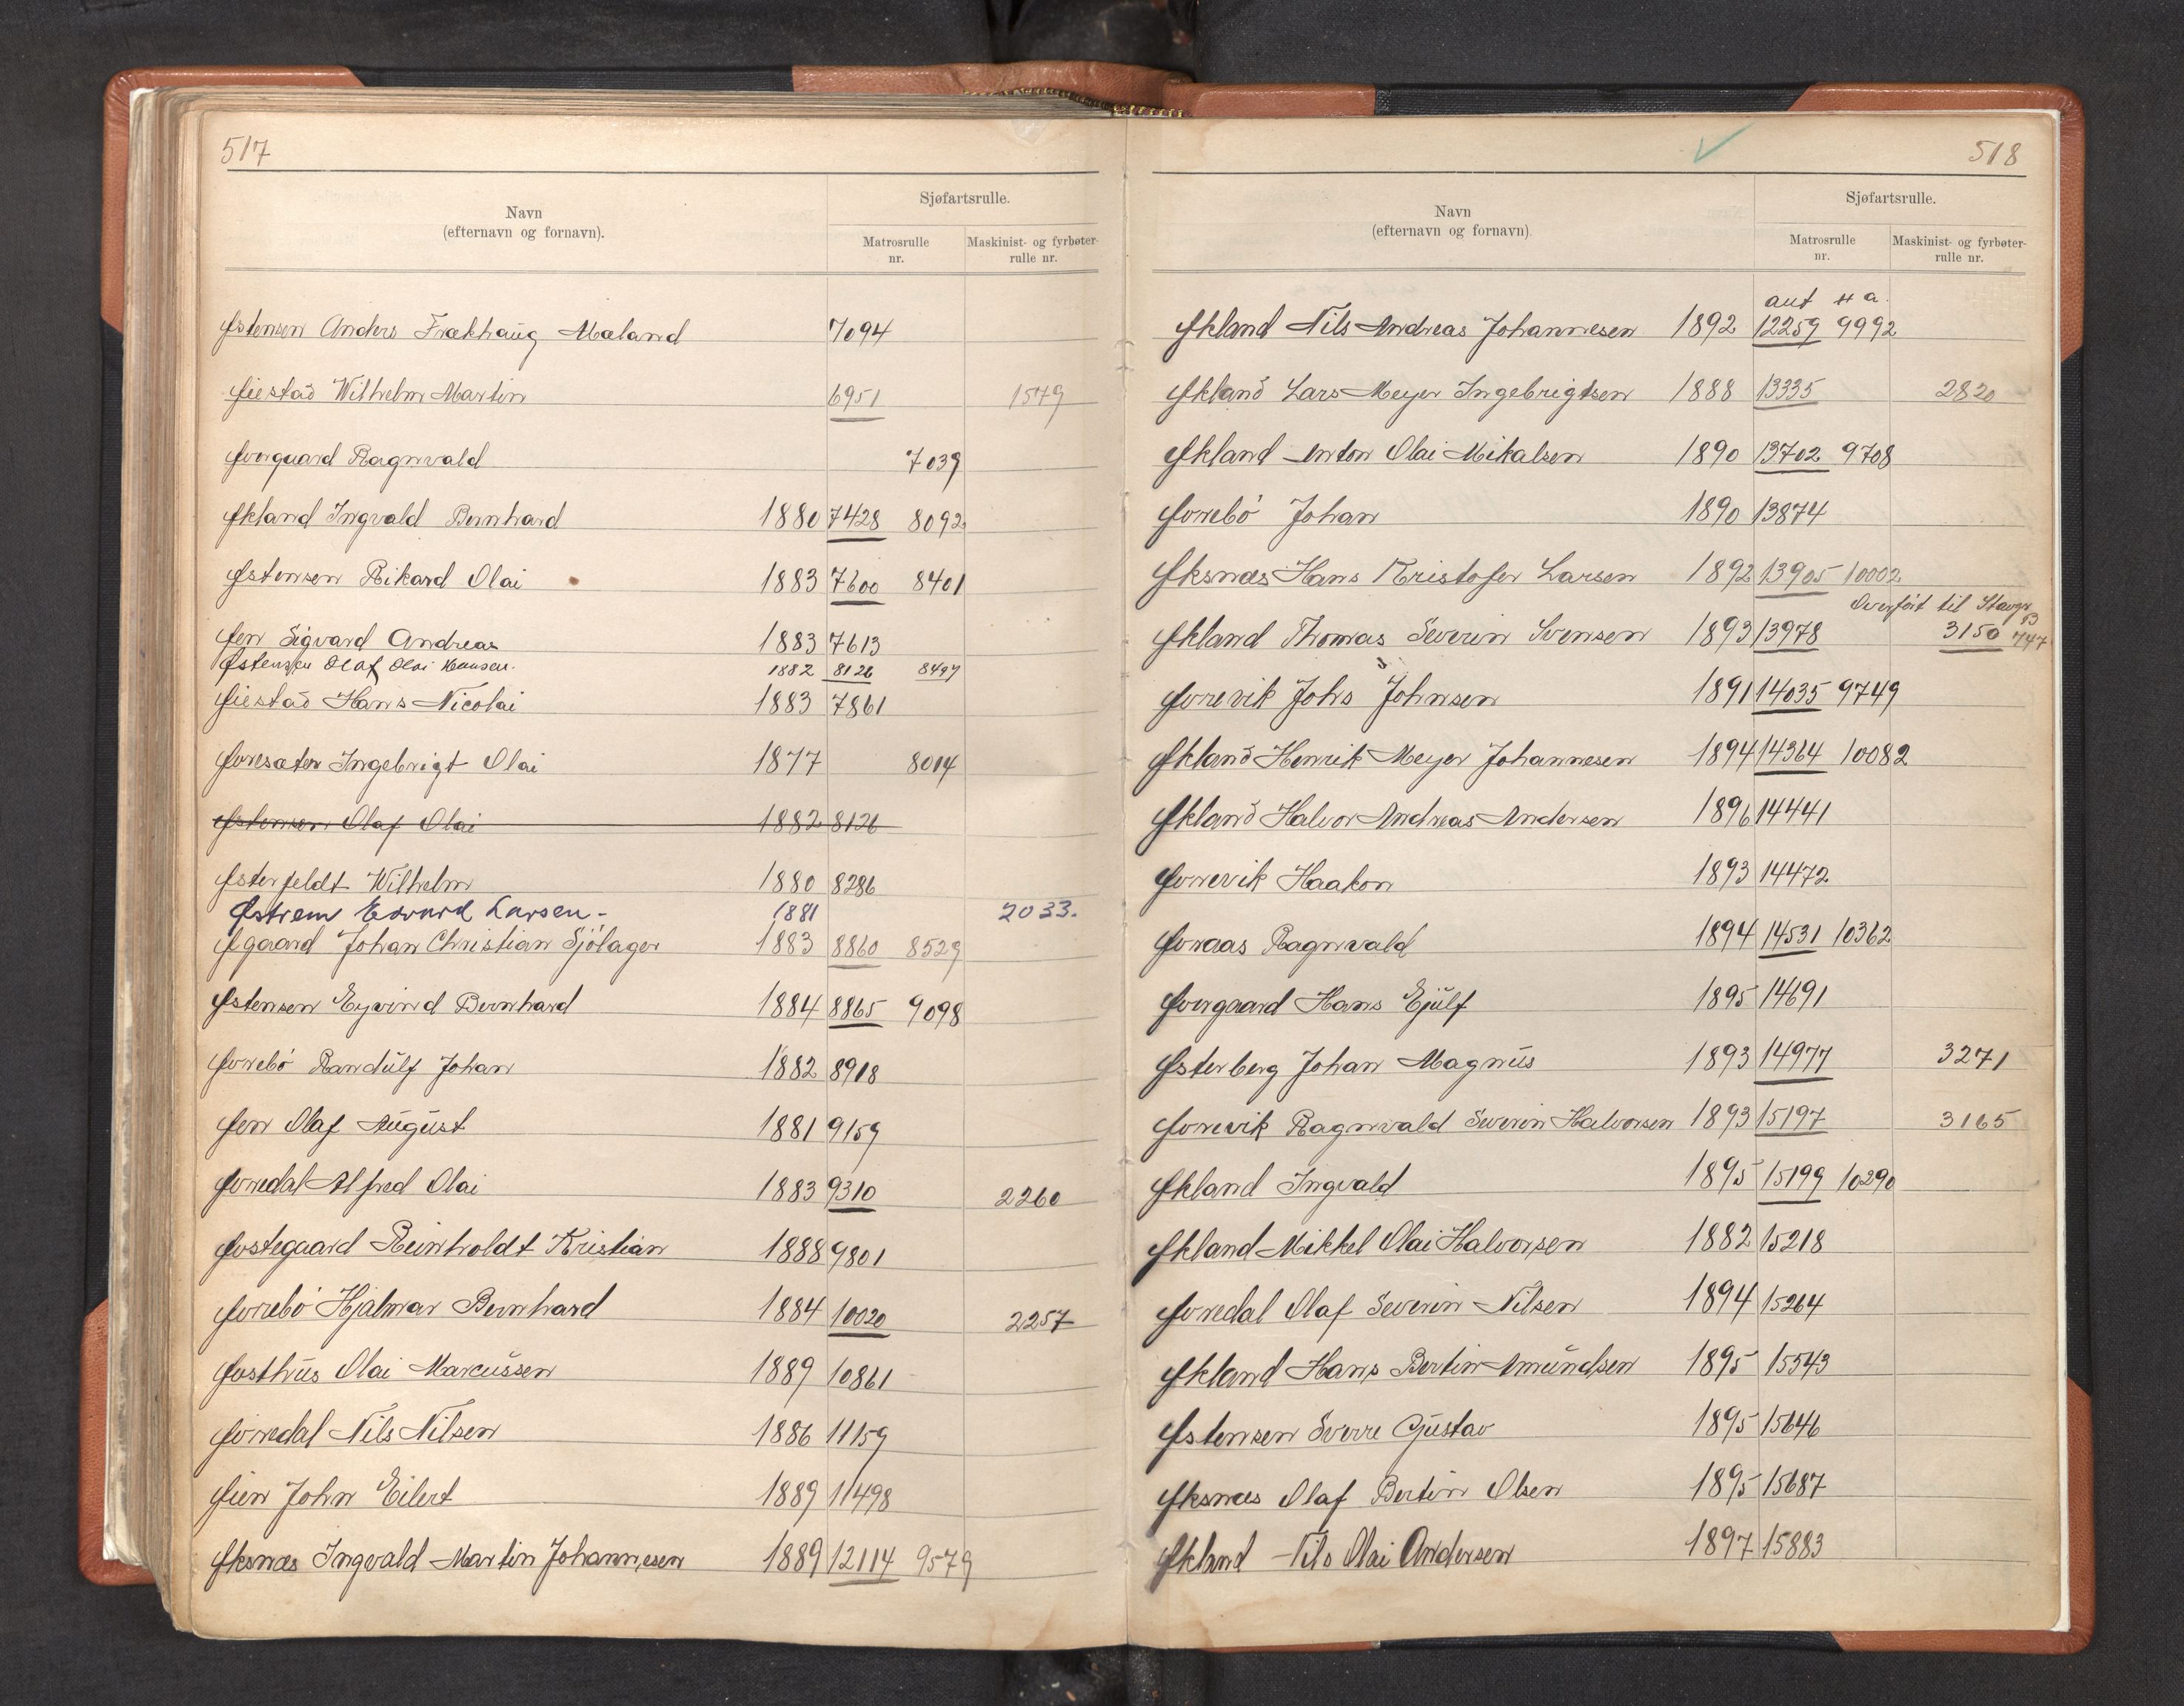 517
Navn
(efternavn og fornavn).
Sjøfartsrulle.
Matrosrulle
nr.
Maskinist- og fyrbøter-
rulle nr.
Østensen Anders Frækhaug Mæland 7094
Øiestad Wilhelm Martin 6951 1579
Øvergaard Ragnvald 7039
Økland Ingvald Bernhard 1880 7428 8092
Østensen Rikard Olai 1883 7600 8401
Øen Sigvard Andreas 1883 7613
Østensen Olaf Olai Hansen. 1882 8126 8497
Øiestad Hans Nicolai 1883 7861
Øvresæter Ingebrigt Olai 1877 8014
Østensen Olaf Olai 1882 8126
Østerfeldt Wilhelm 1880 8286
Østrem Edvard Larsen - 1881 2033.
Øgaard Johan Christian Sjölager 1883 8860 8529
Østensen Eyvind Bernhard 1884 8865 9098
Øvrebö Randulf Johan 1882 8918
Øen Olaf August 1881 9159
Øvredal Alfred Olai 1883 9310 2260
Østegaard Reinholdt Kristian 1888 9801
Øvrebö Hjalmar Bernhard 1884 10020 2257
Østhus Olai Marcussen 1889 10861
Øvredal Nils Nilsen 1886 11159
Øien John Eilert 1889 11498
Øksnæs Ingvald Martin Johannesen 1889 12114 9579
518
Navn
(efternavn og fornavn).
Sjøfartsrulle.
Matrosrulle
nr.
Maskinist- og fyrbøter-
rulle nr.
Økland Nils Andreas Johannesen 1892 12259 9992
Økland Lars Meyer Ingebrigtsen 1888 13335 2820
Økland Anton Olai Mikalsen 1890 13702 9708
Øvrebö Johan 1890 13874
Øksnæs Hans Kristofer Larsen 1892 13905 10002
Overført til Stavgr
Økland Thomas Severin Svensen 1893 13978 3150 747
Øvrevik Johs Johnsen 1891 14035 9749
Økland Henrik Meyer Johannesen 1894 14364 10082
Økland Halvor Andreas Andersen 1896 14441
Øvrevik Haakon 1893 14472
Øvraas Ragnvald 1894 14531 10362
Øvergaard Hans Ejulf 1895 14691
Østerberg Johan Magnus 1893 14977 3271
Øvrevik Ragnvald Severin Halvorsen 1893 15197 3165
Økland Ingvald 1895 15199 10290
Økland Mikkel Olai Halvorsen 1882 15218
Øvredal Olaf Severin Nilsen 1894 15264
Økland Hans Bertin Amundsen 1895 15543
Østensen Sverre Gustav 1895 15646
Øksnæs Olaf Bertin Olsen 1895 15687
Økland Nils Olai Andersen 1897 15883